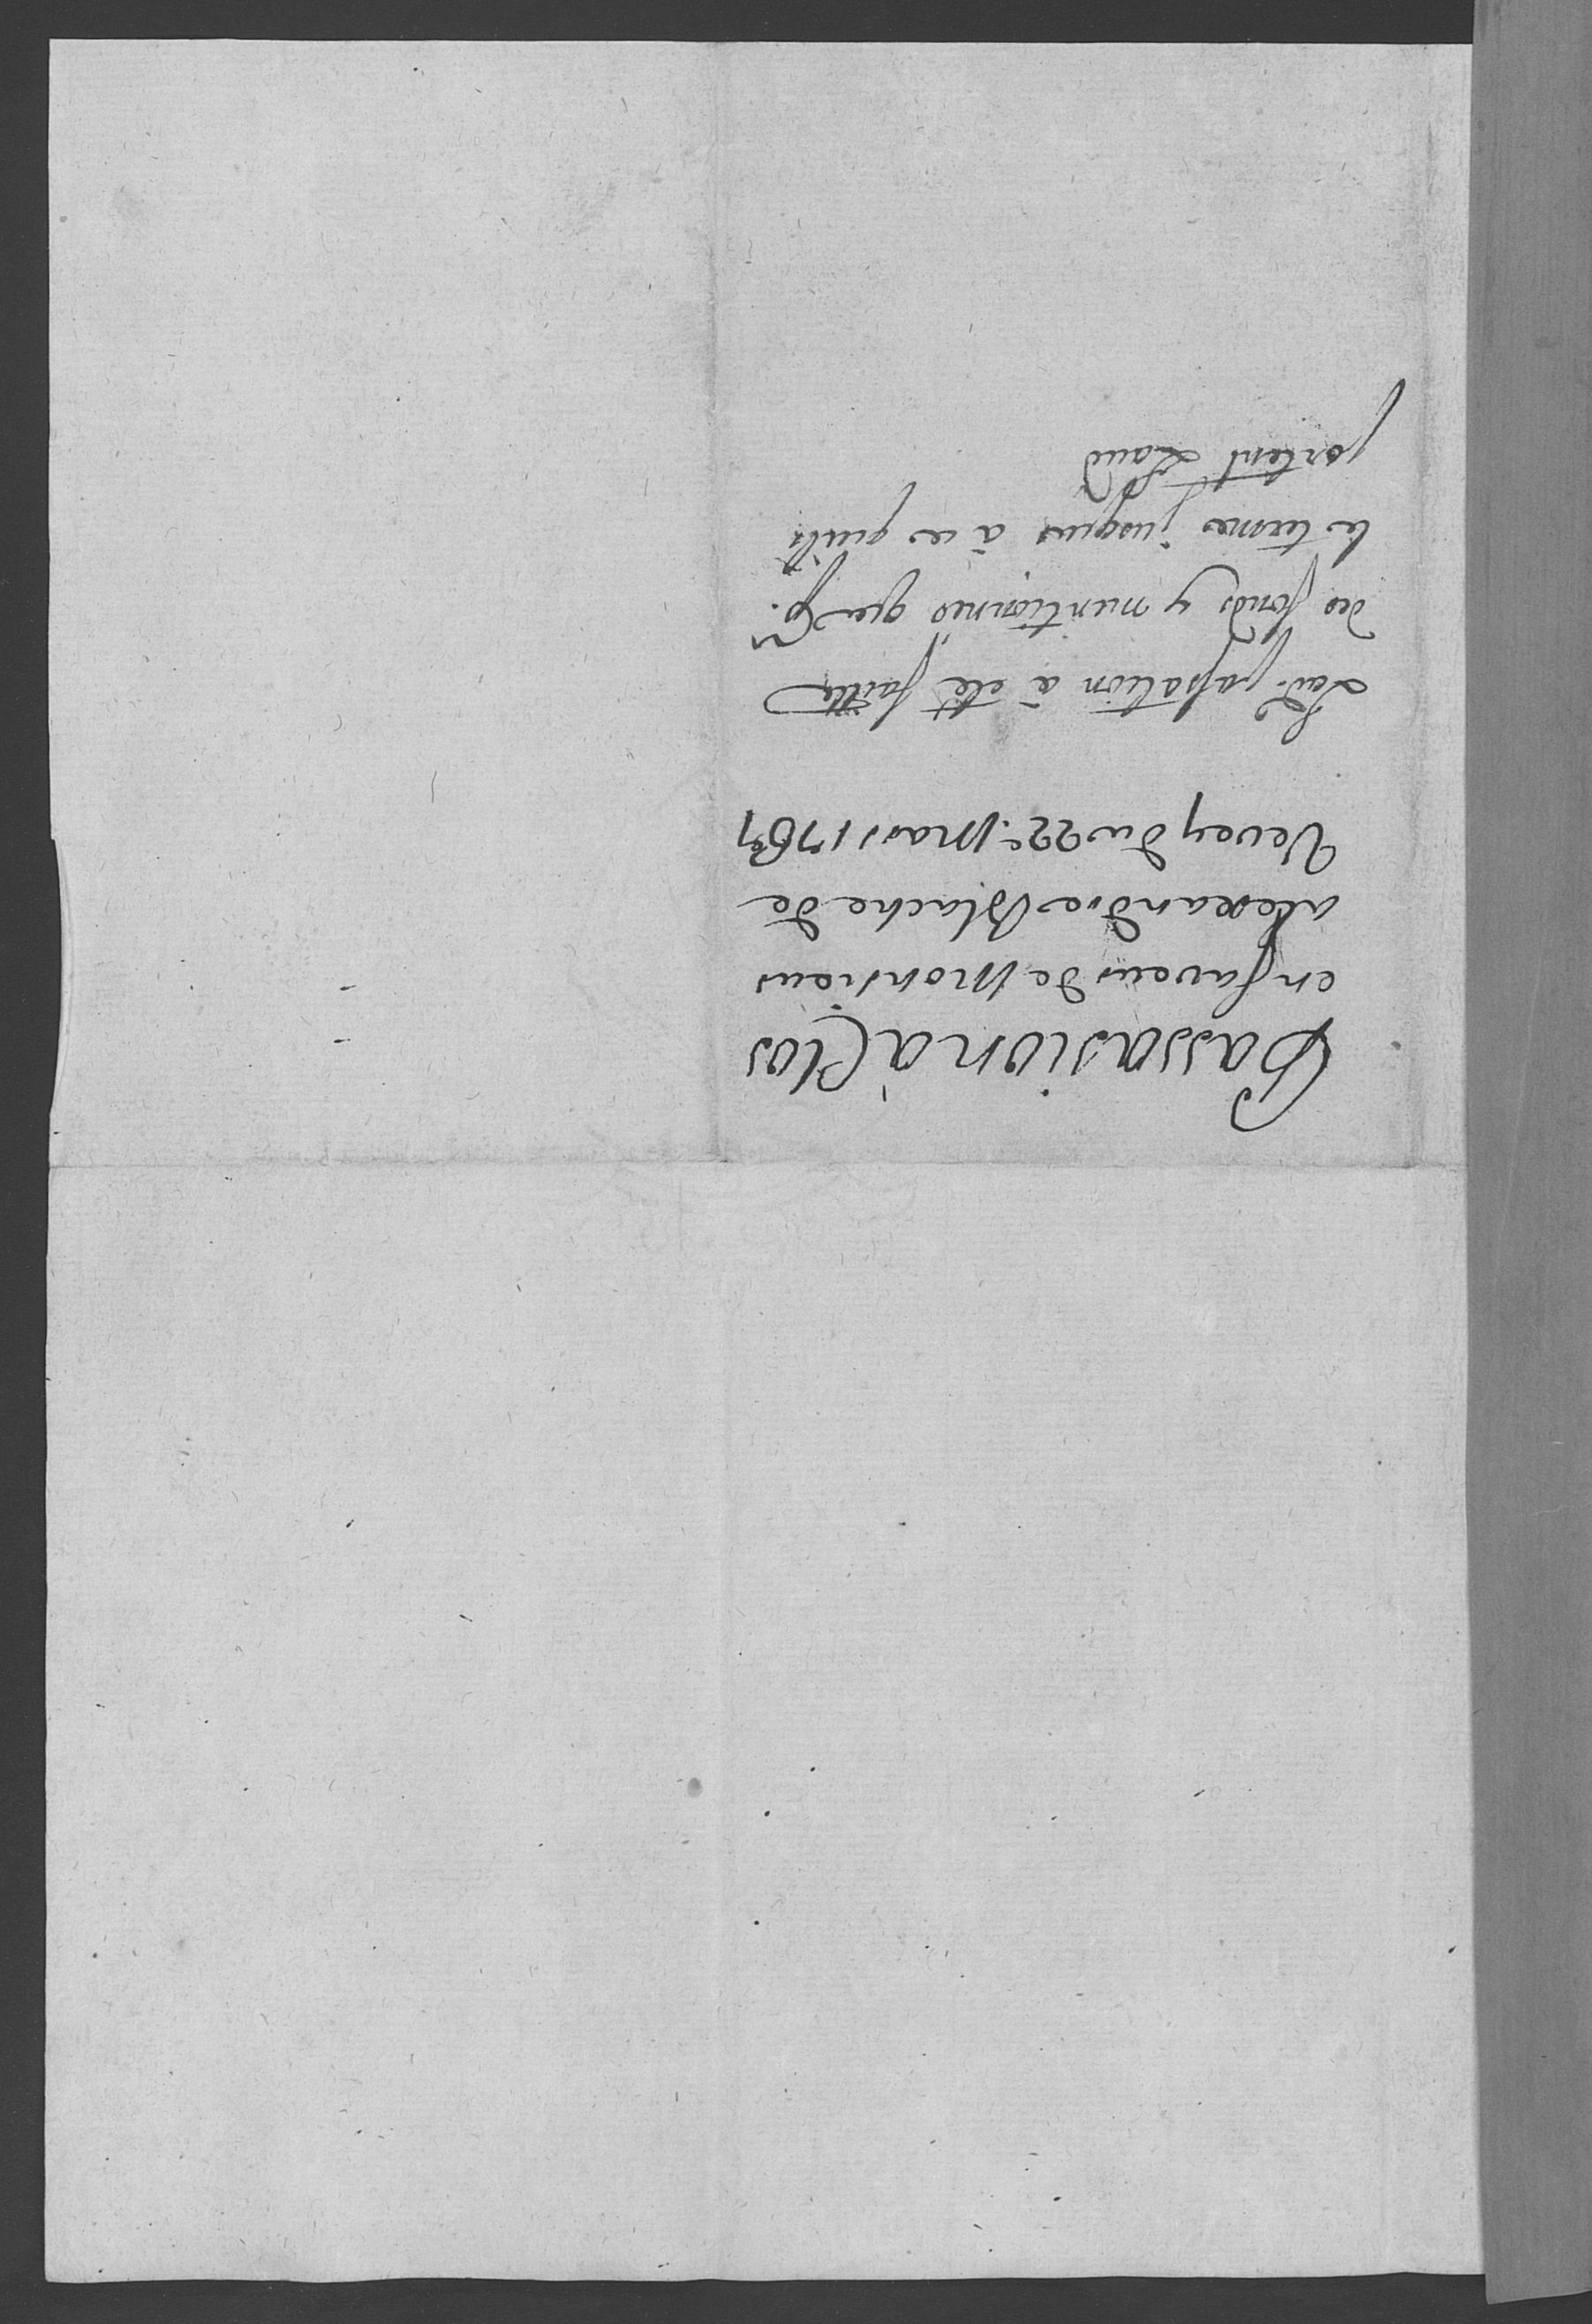 Passasion à Clos
en faveur de Monsieur
alexandre Blache de
Vevey du 22e. Mars 1769
Lad. passation à eté faitte
des fonds y mentionnés que p.r
le terme jusques à ce quils
portent Laud